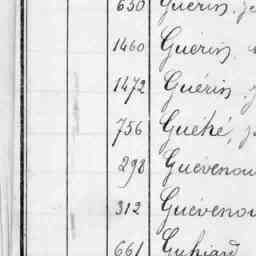 630 Guérin, Je
1460 Guérin,
1472 Guérin, J
756 Guéhé, J
298 Guévenou
312 Guévenou
661 Guhiard